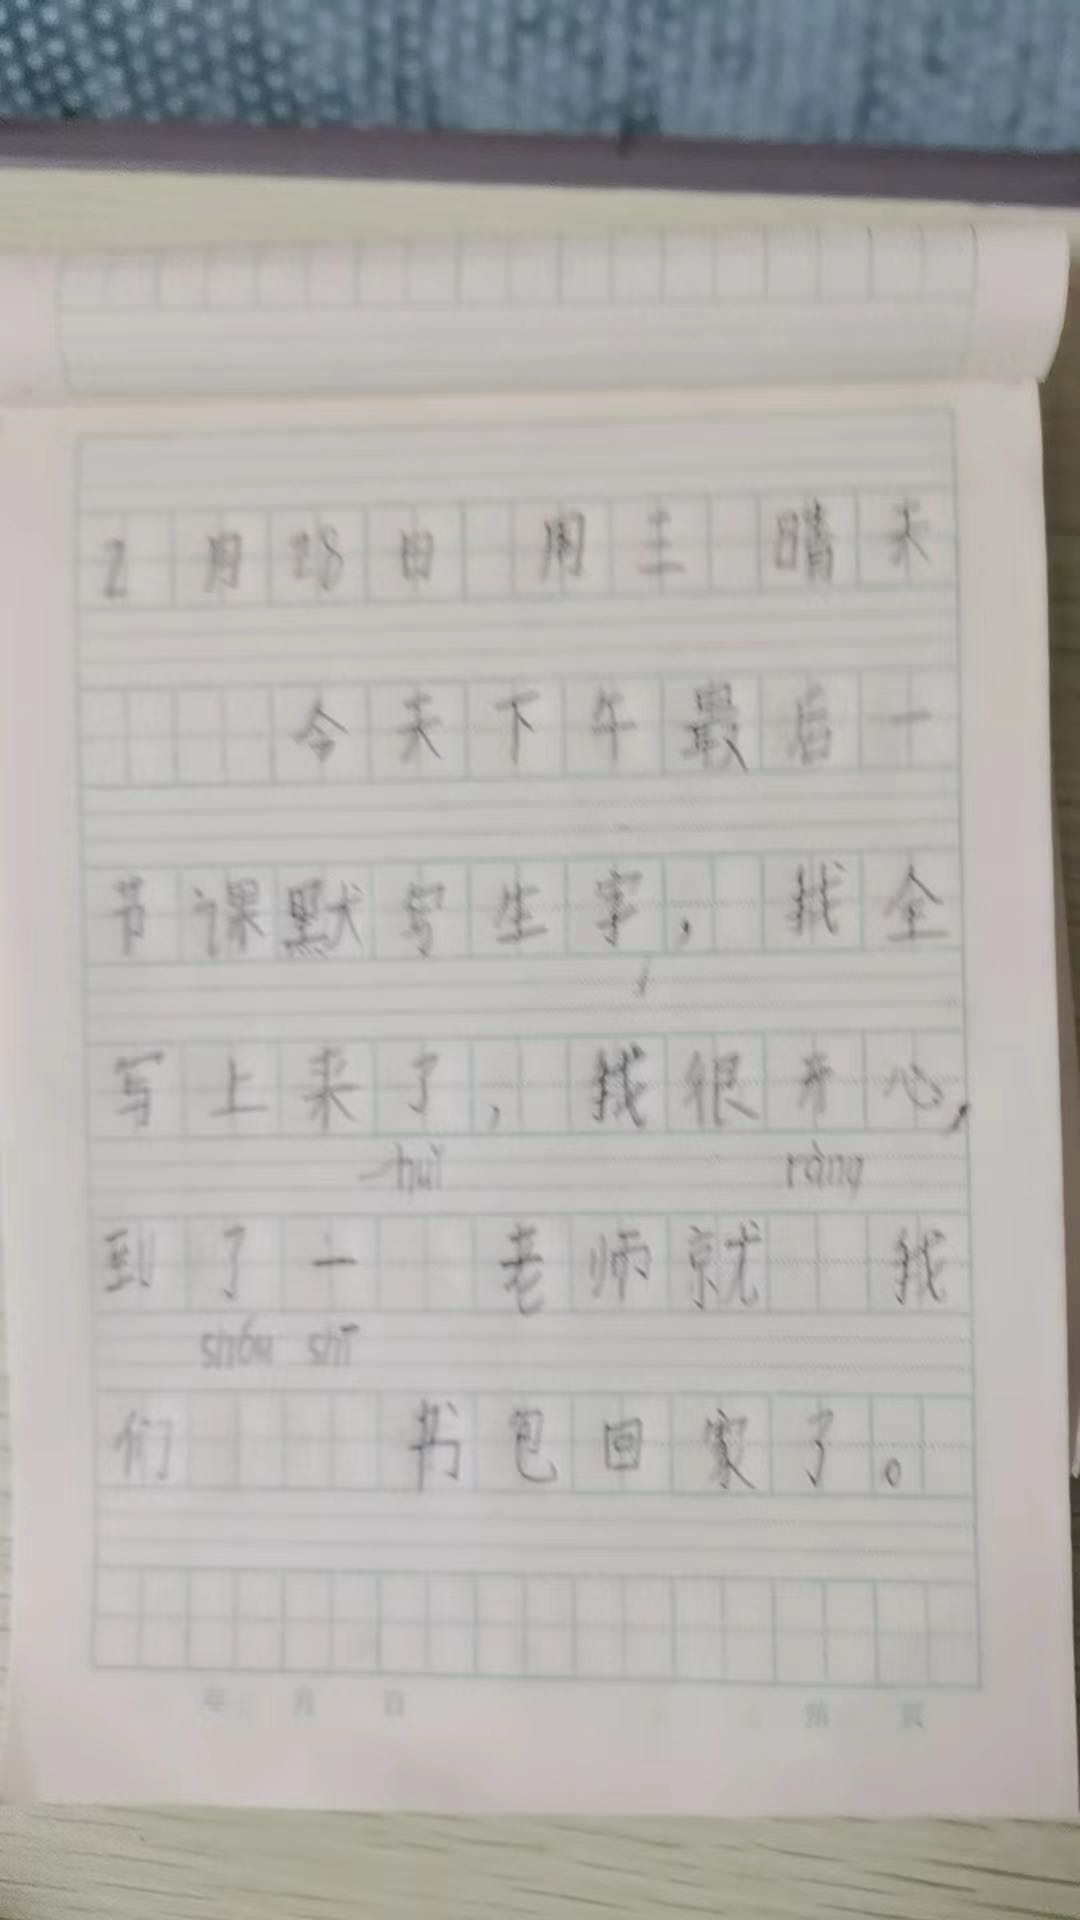 2月28日 周三 晴天
今天下午最后一
节课默写生字，我全
写上来了，我很开心，
huì ràng
到了一 老师就 我
shōu shī
们 书包回家了。
年 月 日 第 页